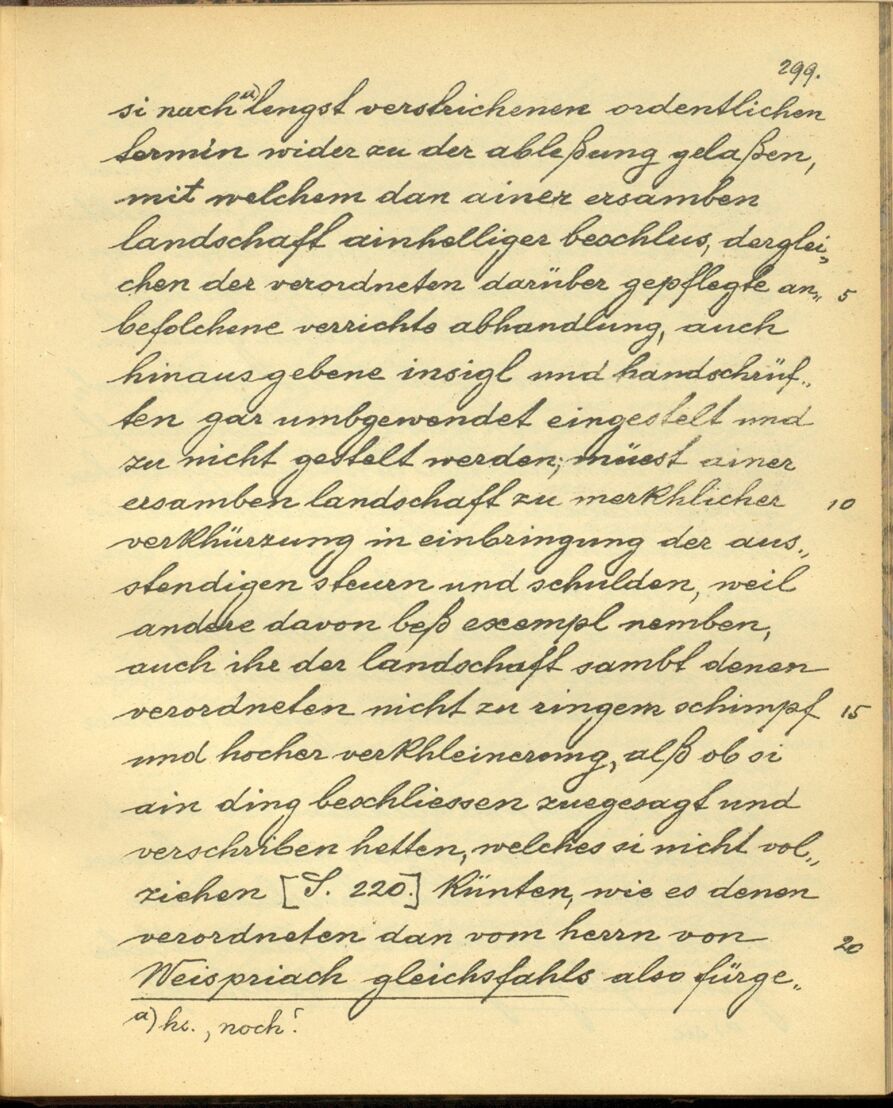 299.
si nach a) lengst verstrichenen ordentlichen
termin wider zu der ableßung gelaßen,
mit welchem dan ainer ersamben
landschaft ainhelliger beschlus, derglei„
chen der verordneten darüber gepflegte an„ 5
befolchene verrichte abhandlung, auch
hinausgebene insigl und handschrüf„
ten gar umbgewendet eingestelt und
zu nicht gestelt werden; müest ainer
ersamben landschaft zu merkhlicher 10
verkhürzung in einbringung der aus„
stendigen steurn und schulden, weil
andere davon beß exempl nemben,
auch ihr der landschaft sambt denen
verordneten nicht zu ringem schimpf 15
und hocher verkhleinerung, alß ob si
ain ding beschliessen zuegesagt und
verschriben hetten, welches si nicht vol„
ziehen [S. 220.] künten, wie es denen
verordneten dan vom herrn von 20
Weispriach gleichsfahls also fürge„
a) hs. „noch“.